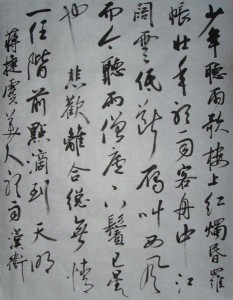 少年聽雨歌樓上紅燭昏羅
帳壯年聽雨客舟中江
闊雲低斷雁叫西風
而今聽雨僧廬下鬢已星
也悲歡離合總無情
一任階前點滴到天明
蔣捷虞美人聽雨